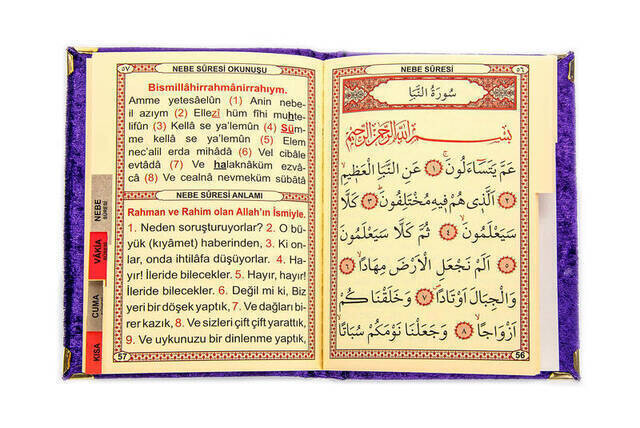 NEBE SÛRESİ
٥٦
سُورَةُ النَّبَأِ
بِسْمِ اللهِ الرَّحْمٰنِ الرَّحِيمِ
عَمَّ يَتَسَاءَلُونَ ۚ ١ عَنِ النَّبَأِ الْعَظِيمِ ۙ
٢ اَلَّذِي هُمْ فِيهِ مُخْتَلِفُونَ ۜ ٣ كَلَّا
سَيَعْلَمُونَ ۙ ٤ ثُمَّ كَلَّا سَيَعْلَمُونَ
٥ اَلَمْ نَجْعَلِ الْاَرْضَ مِهَادًا ۙ ٦
وَالْجِبَالَ اَوْتَادًا ۙ ٧ وَخَلَقْنَا كُمْ
اَزْوَاجًا ۙ ٨ وَجَعَلْنَا نَوْمَكُمْ سُبَاتًا ۙ
56
٥٧
NEBE SÛRESİ OKUNUŞU
Bismillâhirrahmânirrahıym.
Amme yetesâelûn (1) Anin nebe-
il azıym (2) Ellezî hüm fîhi muhte-
lifûn (3) Kellâ se ya'lemûn (4) Süm-
me kellâ se ya'lemûn (5) Elem
nec'alil erda mihâdâ (6) Vel cibâle
evtâdâ (7) Ve halaknâküm ezvâ-
câ (8) Ve cealnâ nevmeküm sübâtâ
NEBE SÛRESİ ANLAMI
Rahman ve Rahim olan Allah'ın İsmiyle.
1. Neden soruşturuyorlar? 2. O bü-
yük (kıyâmet) haberinden, 3. Ki on-
lar, onda ihtilâfa düşüyorlar. 4. Ha-
yır! İleride bilecekler. 5. Hayır, hayır!
İleride bilecekler. 6. Değil mi ki, Biz
yeri bir döşek yaptık, 7. Ve dağları bi-
rer kazık, 8. Ve sizleri çift çift yarattık,
9. Ve uykunuzu bir dinlenme yaptık,
57
NEBE
VÂKIA
CUMA
KISA